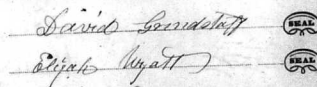 David Grindstaff SEAL
Elijah Wyatt SEAL